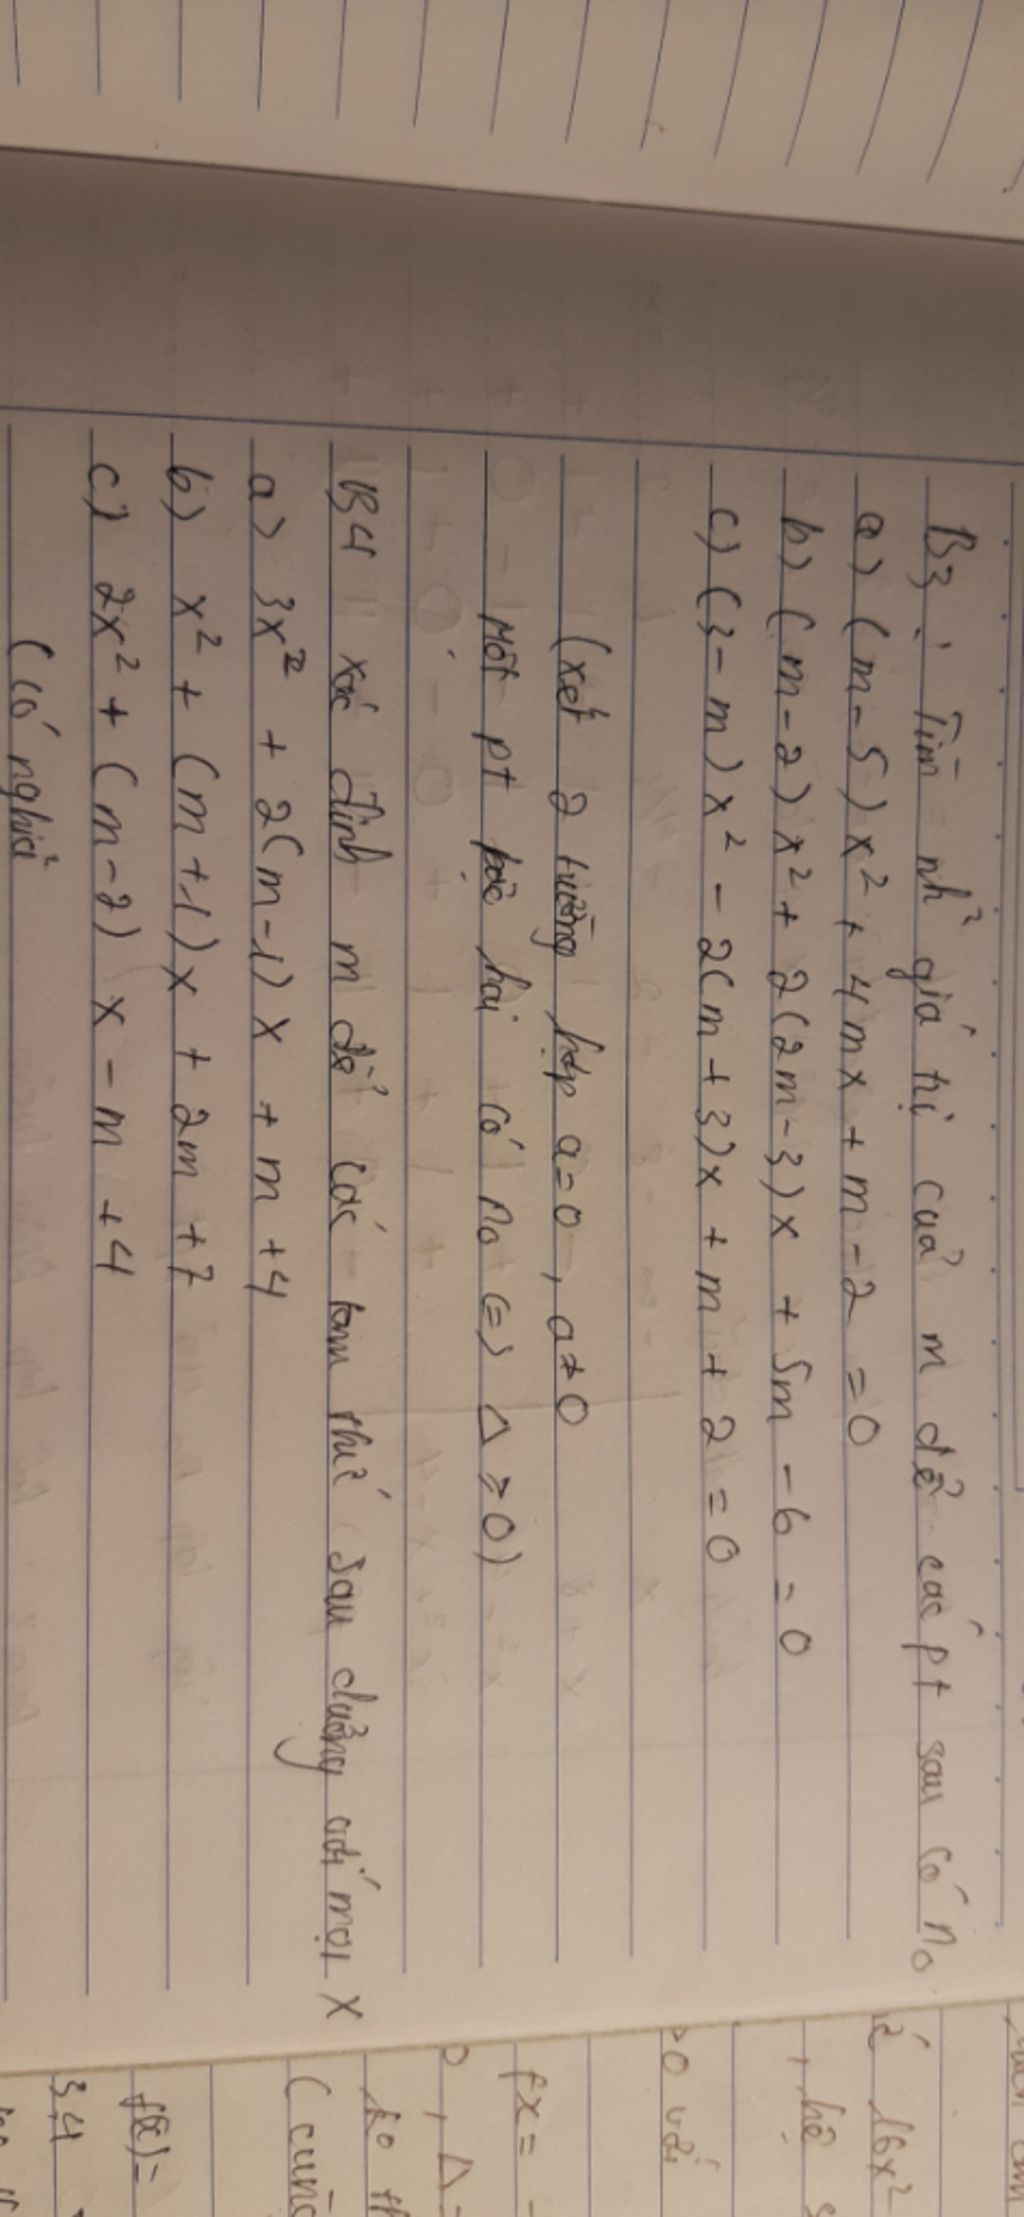 B3 : Tìm nh² giá trị của m để các pt sau có n₀
a) (m-5)x² + 4mx + m-2 = 0
b) (m-2)x² + 2(2m-3)x + 5m - 6 = 0
c) (3-m)x² - 2(m+3)x + m + 2 = 0
(xét 2 trường hợp a=0, a≠0
Một pt bậc hai có n₀ (=) Δ ≥ 0)
B4 xác định m để các tam thức sau dương với mọi x
a) 3x² + 2(m-1)x + m + 4
b) x² + (m+1)x + 2m + 7
c) 2x² + (m-2)x - m + 4
(có nghĩa
16x²
, hệ
>0 với
fx = -
, Δ
ko th
(cùng
f(x)=
34